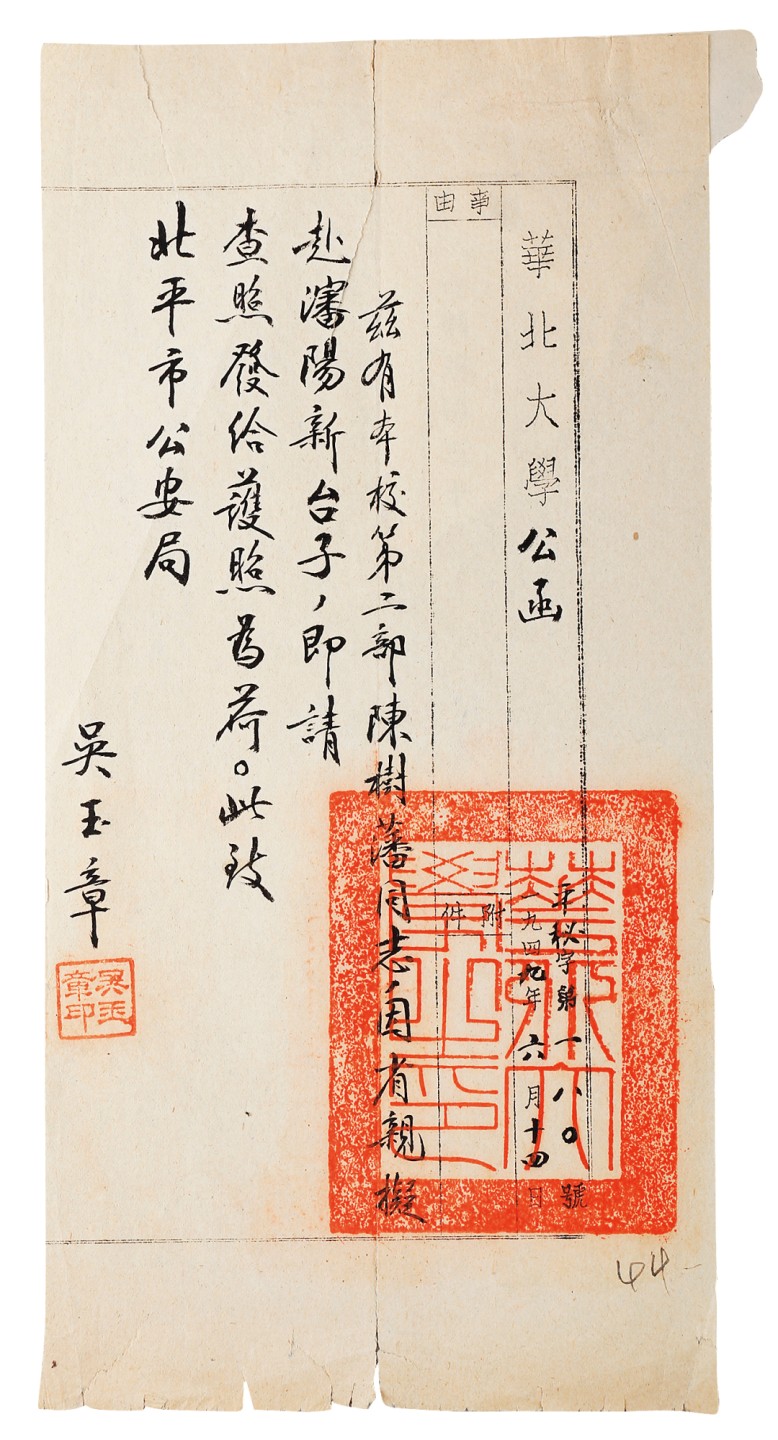 華北大學公函
平秘字第一八〇號
一九四九年六月十四日
事由
附件
茲有本校第二部陳樹藩同志，因省親擬
赴瀋陽新台子，即請
查照發給護照為荷。此致
北平市公安局
吳玉章
吳玉章印
華北大學之印
44